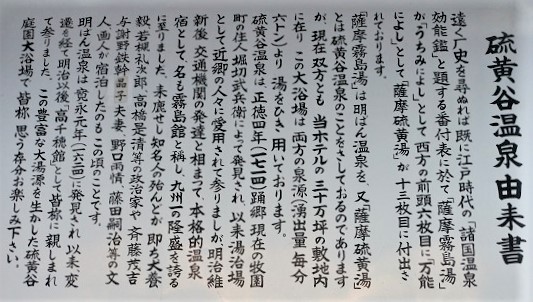 硫黄谷温泉由来書
遠く歴史を尋ぬれば既に江戸時代の「諸国温泉
効能鑑」と題する番付表に於て「薩摩霧島湯」
が「うちみによし」として西方の前頭六枚目に「万能
によし」として「薩摩硫黄湯」が十三枚目に付出さ
れております。
「薩摩霧島湯」は明ばん温泉を、又「薩摩硫黄湯」
とは硫黄谷温泉のことをさしておるのであります
が、現在双方とも当ホテルの三十万坪の敷地内
に在り、この大浴場は両方の泉源（湧出量毎分
六トン）より湯をひき用いております。
硫黄谷温泉は正徳四年（一七一四）踊郷（現在の牧園
町）の住人堀切武兵衛によって発見され、以来湯治場
として近郷の人々に愛用されて参りましたが、明治維
新後交通機関の発達と相まって、本格的温泉
宿として、名も霧島館と称し、九州一の隆盛を誇る
に至りました。来鹿せし知名人の殆んどが即ち犬養
毅、若槻礼次郎、高橋是清等の政治家や斉藤茂吉
与謝野鉄幹晶子夫妻、野口雨情、藤田嗣治等の文
人画人が宿泊したのもこの頃のことです。
明ばん温泉は寛永元年（一六二四）に発見され、以来、変
遷を経て明治以後「高千穂館」として皆様に親しまれ
て参りました。この豊富な大湯源を生かした硫黄谷
庭園大浴場で皆様思う存分お楽しみ下さい。